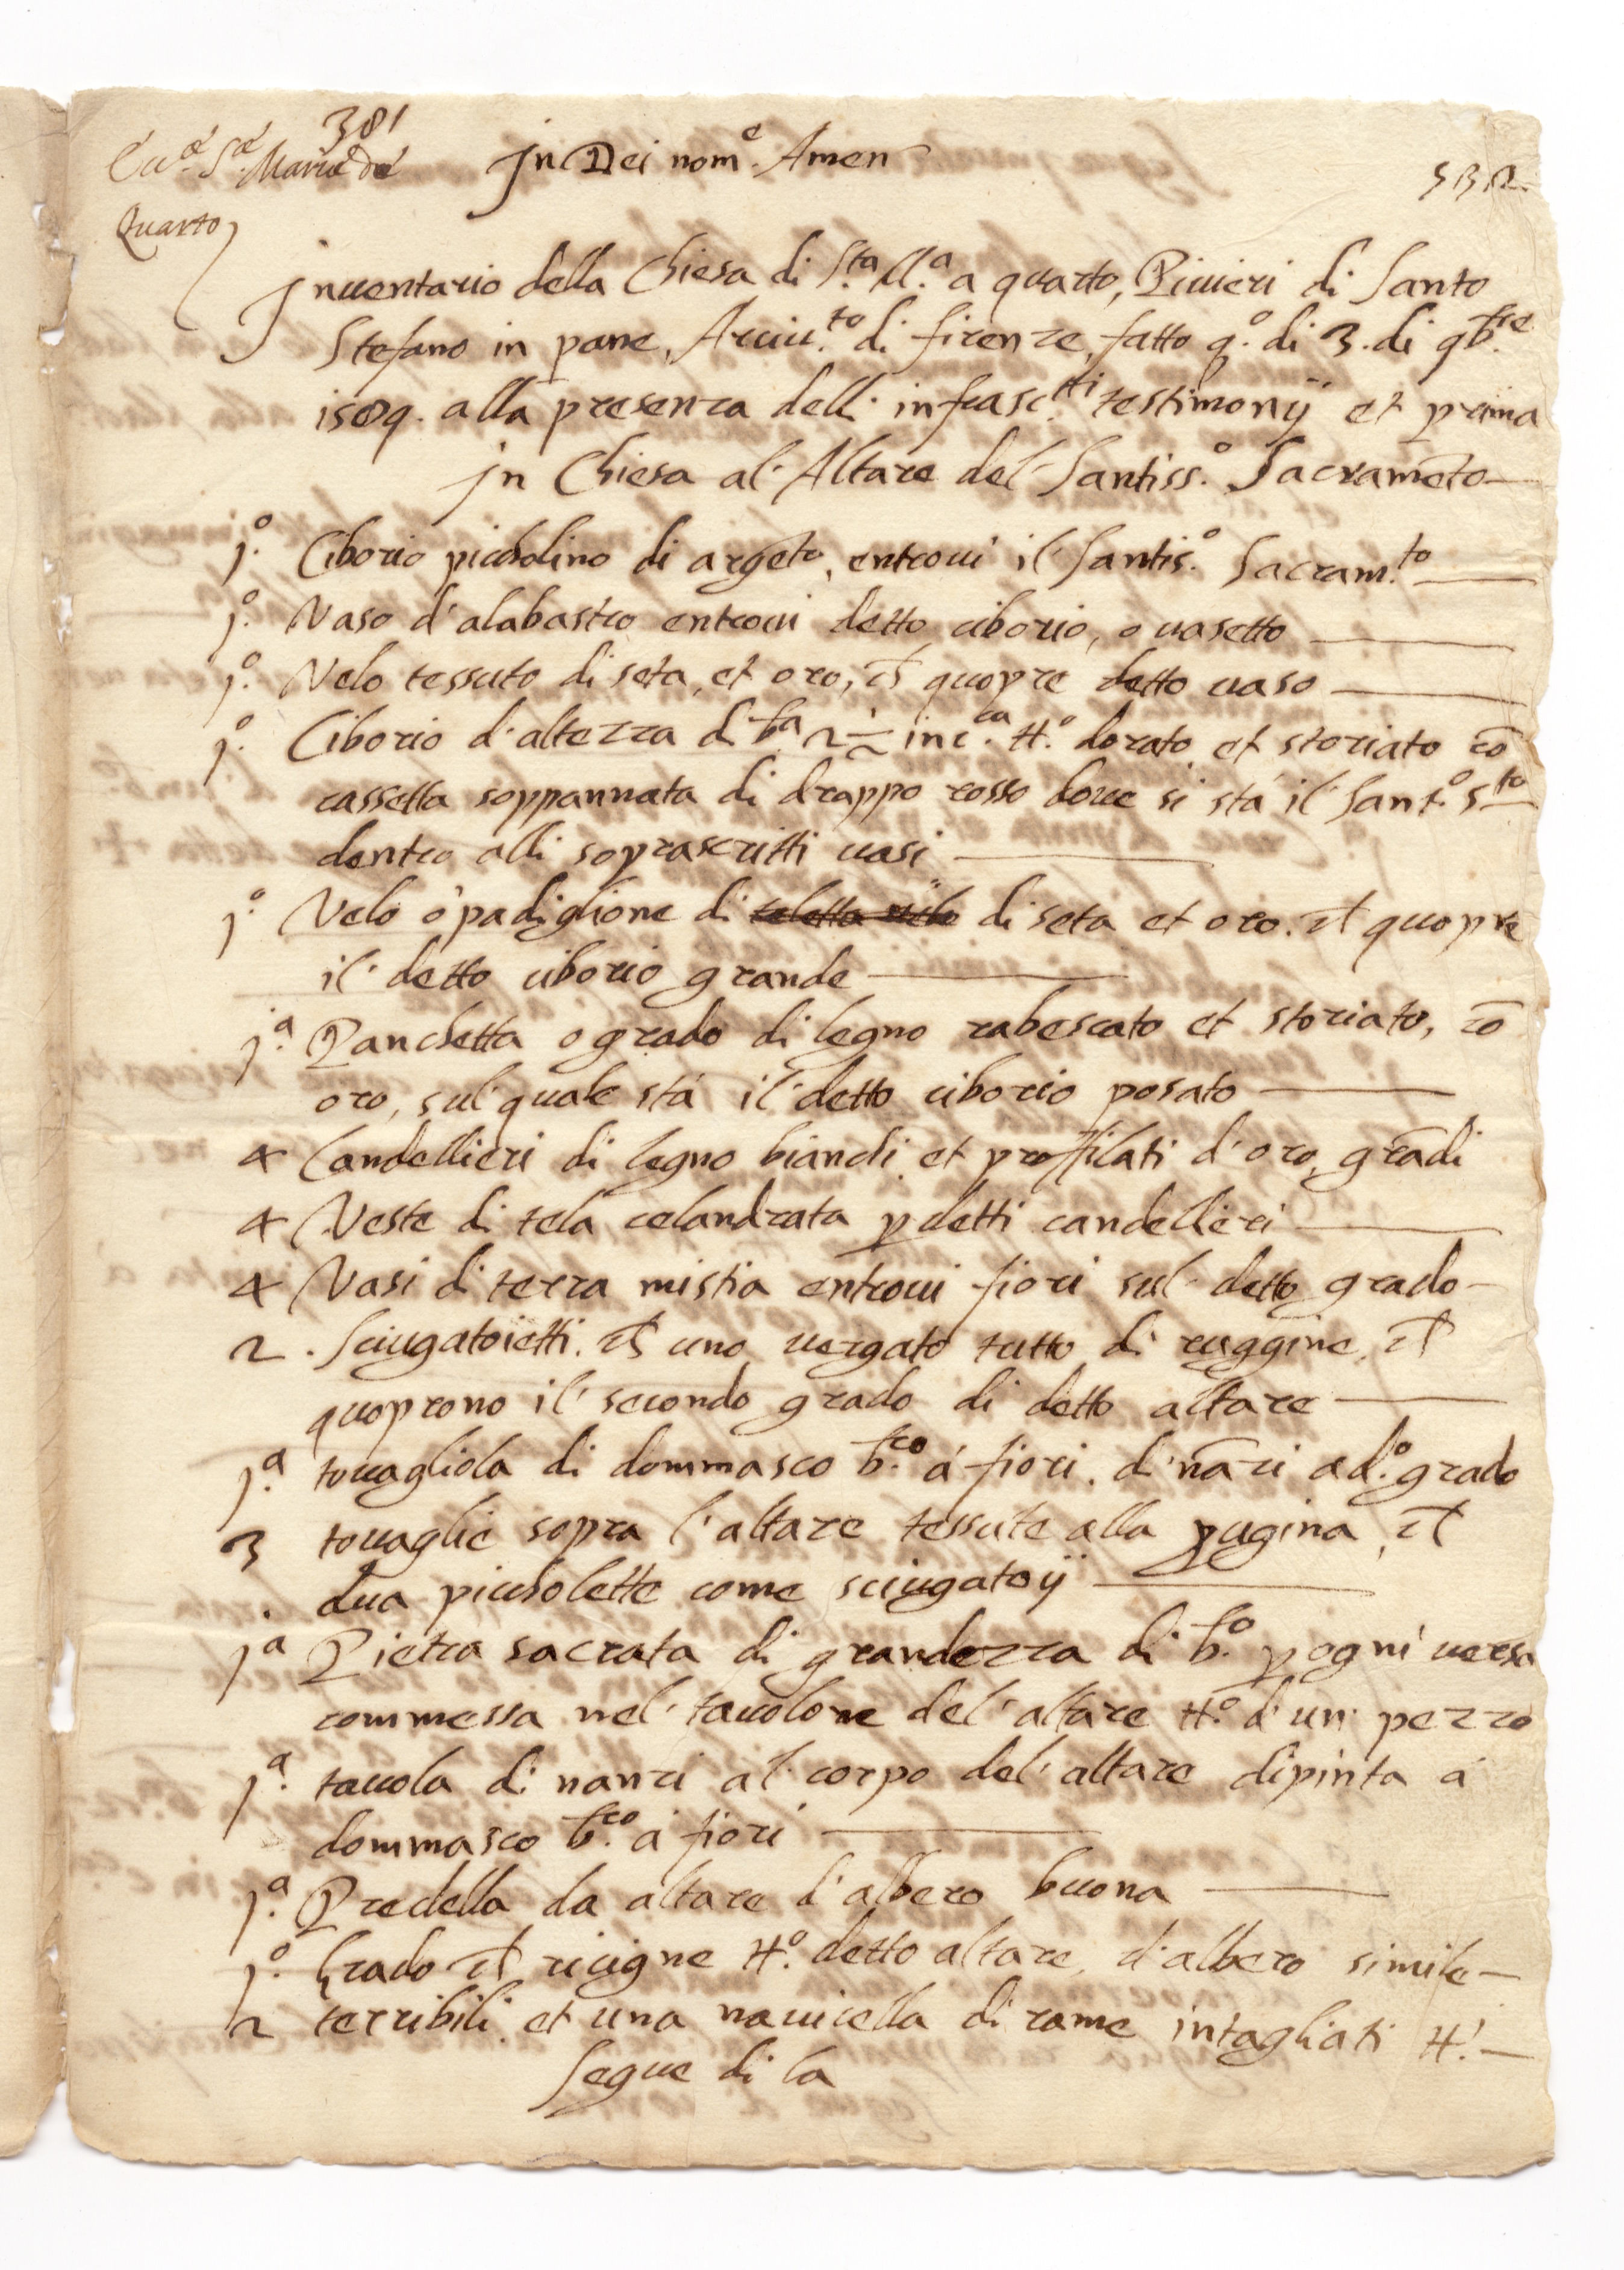 381
Eccᵃ Sᵃ Mariæ de
Quarto
In Dei nom.ᵉ Amen
532
Inuentario della Chiesa di S.ᵗᵃ M.ᵃ a quarto, Piuieri di Santo
Stefano in pane, Arciu.ᵗᵒ di firenze, fatto q.º di 3. di 9b.ʳᵉ
1589. alla presenza delli infrasc.ᵗᵗⁱ testimonij et prima
In Chiesa al' Altare del Santiss.º Sacramēto
j.º Ciborio picciolino di argēto, entroui il Santis.º Sacram.ᵗᵒ
j.º Vaso d'alabastro entroui detto ciborio, o uasetto
j.º Velo tessuto di seta, et oro, ch quopre detto uaso
j.º Ciborio d'altezza di bᵃ 2½ inc.ᶜᵃ tt.º dorato et storiato cō
cassetta soppannata di drappo rosso doue si stà il Sant.º S.ᵗᵒ
dentro alli soprascritti uasi
j.º Velo ò padiglione di di seta et oro. ch quopre
il detto ciborio grande
j.ᵃ Panchetta o grado di legno rabescato et storiato, cō
oro, sul quale stà il detto ciborio posato
4 Candellieri di legno bianchi et proffilati d'oro grādi
4 Veste di tela celandrata p detti candellieri
4 Vasi di terra mistia entroui fiori sul detto grado
2. Sciugatoietti. ch uno uergato tutto di ruggine, ch
quoprono il secondo grado di detto altare
j.ᵃ touagliola di dommasco b.ᶜᵒ à fiori. di nāzi a d.º grado
3 touaglie sopra l'altare tessute alla pugina, ch
dua picciolette come sciugatoij
j.ᵃ Pietra sacrata di grandezza di b.º p ogni uerso
commessa nel tauolone del' altare tt.º d'un pezzo
j.ᵃ tauola di nanzi al corpo del' altare dipinta à
dommasco b.ᶜᵒ à fiori
j.ᵃ Predella da altare d'albero buona
j.º Grado ch ricigne tt.º detto altare, d'albero simile
2 terribili et una nauicella di rame intagliati tt.ⁱ
Segue di la